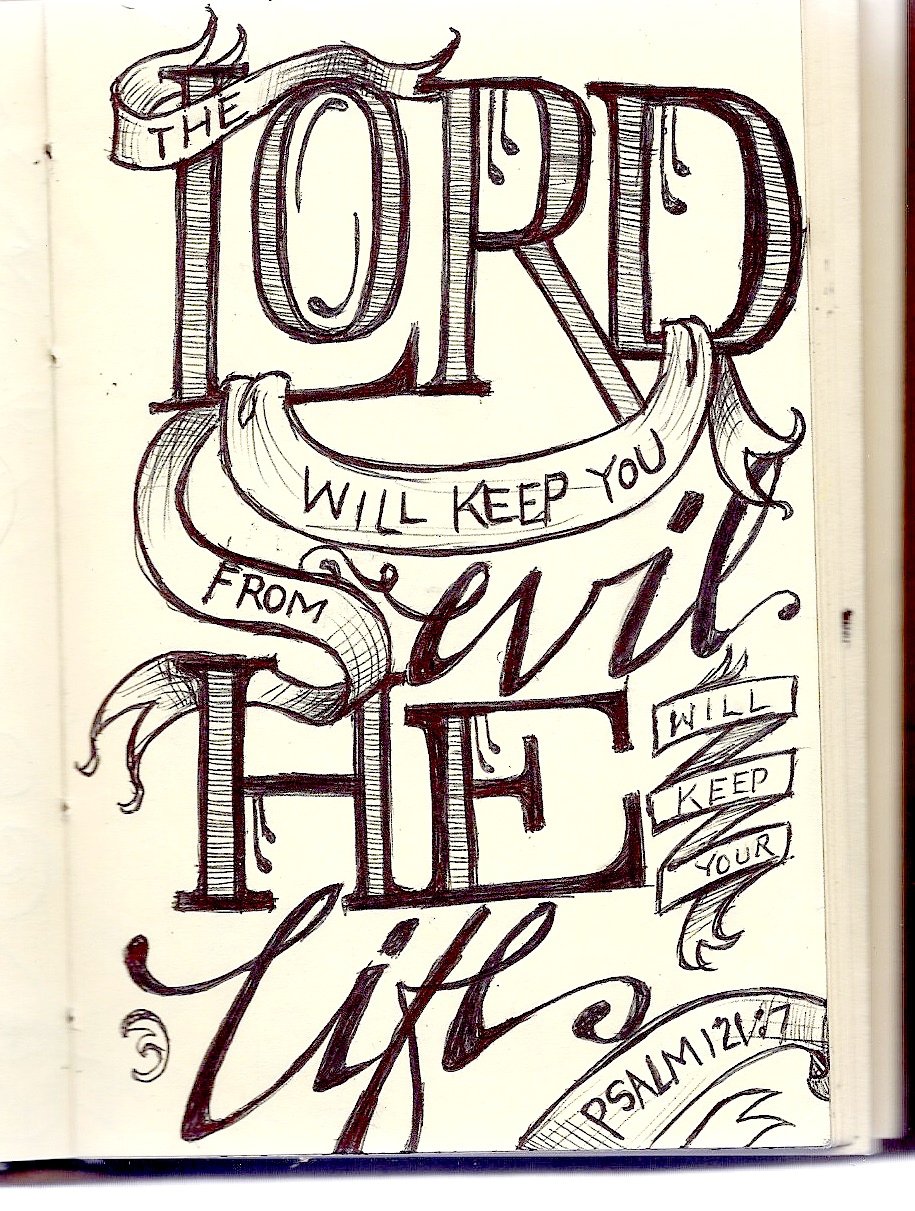 THE
LORD
WILL KEEP YOU
FROM
evil
HE
WILL
KEEP
YOUR
life
PSALM 121:7